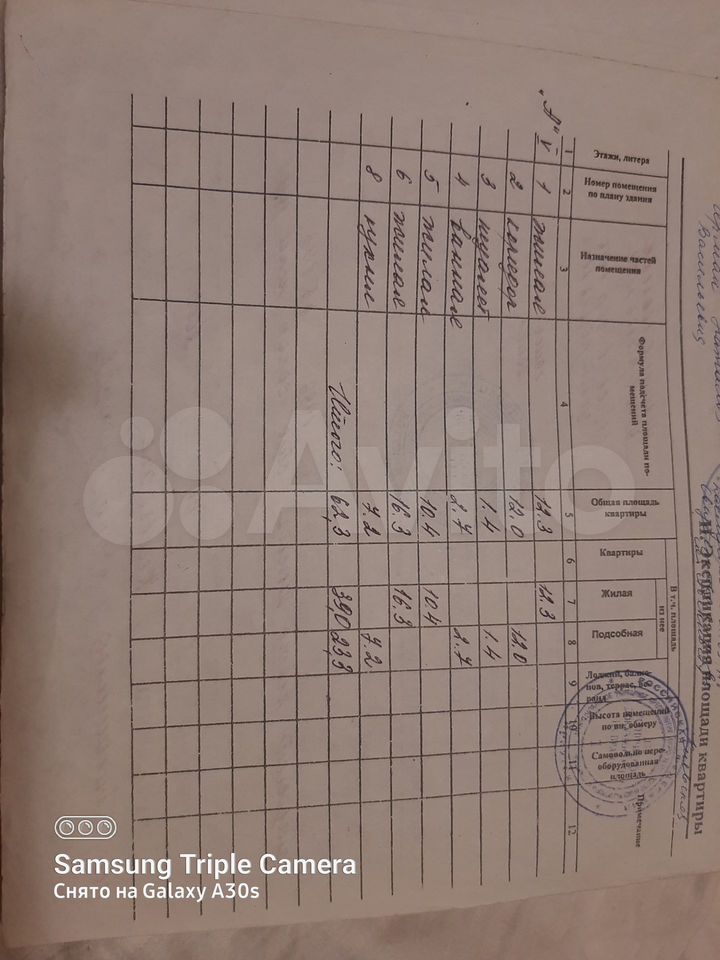 Васильевна
II. Экспликация площади квартиры
Этажи, литера
Номер помещения по плану здания
Назначение частей помещения
Формула подсчета площади помещений
Общая площадь квартиры
В т.ч. площадь
Квартиры
из нее
Жилая
Подсобная
Лоджий, балконов, террас, веранд
Высота помещений по вн. обмеру
Самовольно переоборудованная площадь
Примечание
1 2 3 4 5 6 7 8 9 10 11 12
"А" V 1 жилая 12.3 12.3
2 коридор 12.0 12.0
3 туалет 1.4 1.4
4 ванная 2.7 2.7
5 жилая 10.4 10.4
6 жилая 16.3 16.3
8 кухня 7.2 7.2
Итого: 62,3 39,0 23,3
Avito
Samsung Triple Camera
Снято на Galaxy A30s